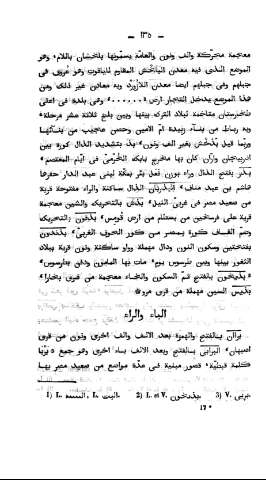 — ١٣٥ —
معجمة محرّكة والف ونون والعامّة يسمّونها بلخشان باللام وهو
الموضع الذى فيه معدن البلخش المقاوم للياقوت وهو عروق فى
جبلهم وفى جبلهم ايضا معدن اللازورد وبه معادن غير ذلك ومن
هذا الموضع يدخل التجار ارض ...... وهى بلدة فى اعلى
طخارستان متاخمة لبلاد الترك بينها وبين بلخ ثلاثة عشر مرحلة
وبه رباط من بناء زبيدة امّ الامين وحصن عجيب من بنائها
وربّما قيل بذخش بغير الف ونون بذّ بتشديد الذال كورة بين
اذربيجان واران كان بها مخرج بابك الخرّمى فى ايّام المعتصم
بذر بفتح الذال وراء بوزن فعل بئر بمكّة لبنى عبد الدار حفرها
هاشم بن عبد مناف البذرمان الذال ساكنة والراء مفتوحة قرية
من صعيد مصر فى غربى النيل بذش بالتحريك والشين معجمة
قرية على فرسخين من بسطام من ارض قومس بذقون بالتحريك
وضم القاف كورة بمصر من كور الحوف الغربى بذندون
بفتحتين وسكون النون ودال مهملة وواو ساكنة ونون قرية ببلاد
الثغور بينها وبين طرسوس يوم مات بها المامون ودفن بطرسوس
بذيخون بالفتح ثم السكون والخاء معجمة من قرى بخارا
بذيس السين مهملة من قرى مرو
الباء والراء
برآن بالفتح والهمزة بعد الالف والف اخرى ونون من قرى
اصبهان البرابى بالفتح وبعد الالف باء اخرى وهو جمع بربا
كلمة قبطية قصور مبنية فى عدّة مواضع من صعيد مصر بها
17*